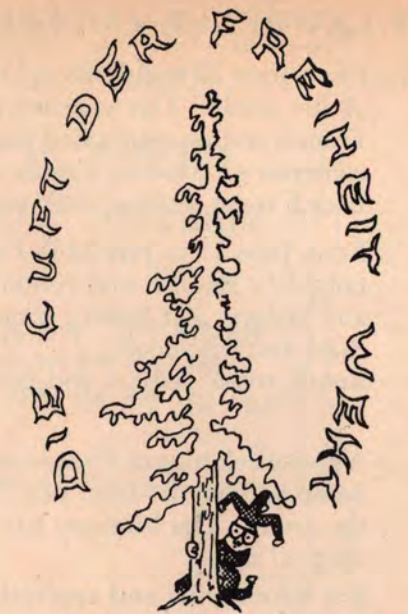 DIE LUFT DER FREIHEIT WEHT